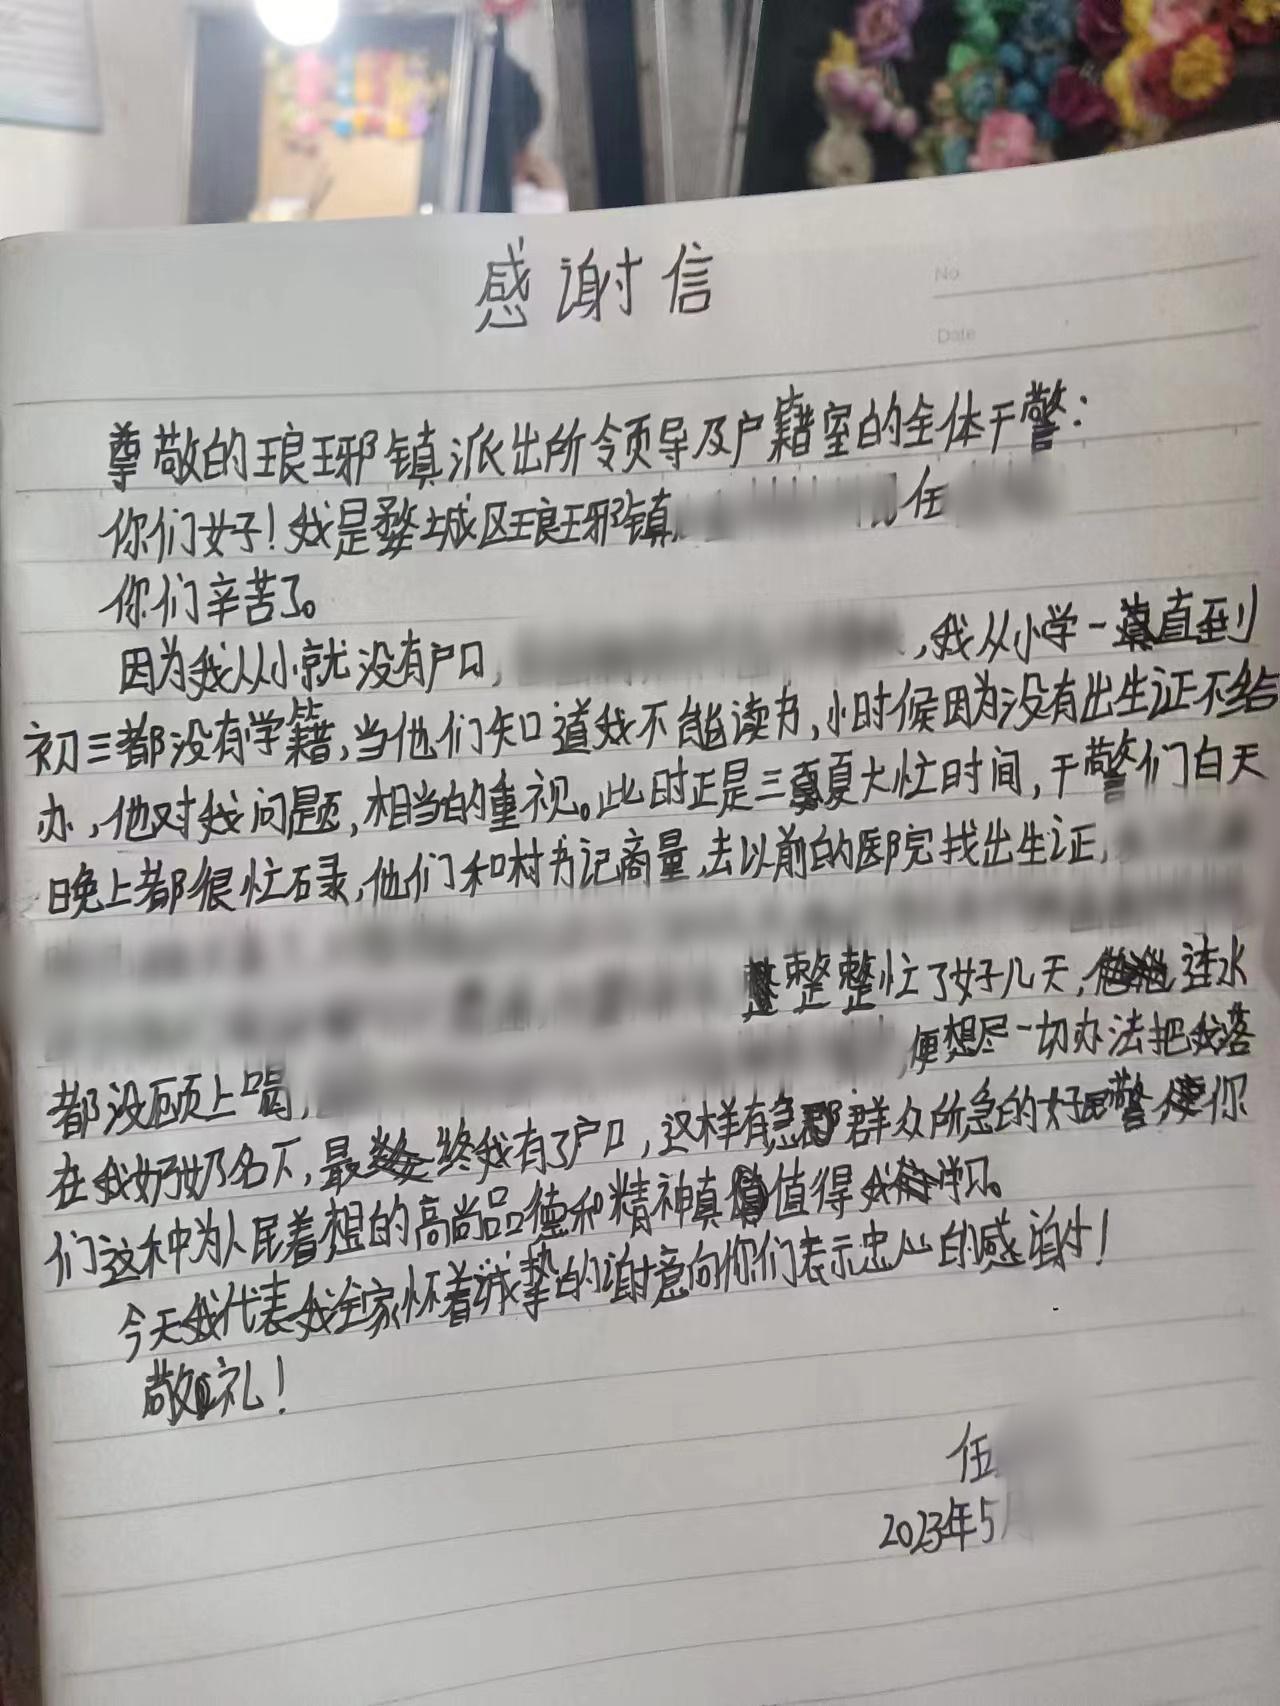 No
Date
感谢信
尊敬的琅琊镇派出所领导及户籍室的全体干警：
你们好！我是婺城区琅琊镇 任
你们辛苦了。
因为我从小就没有户口， ，我从小学一直到
初三都没有学籍，当他们知道我不能读书，小时候因为没有出生证不给
办，他对我问题，相当的重视。此时正是三夏大忙时间，干警们白天
晚上都很忙碌，他们和村书记商量，去以前的医院找出生证，
整整忙了好几天，连水
都没顾上喝， ，便想尽一切办法把我落
在我奶奶名下，最终我有了户口，这样有急群众所急的好民警 你
们这种为人民着想的高尚品德和精神真值得 学习。
今天我代表我全家怀着诚挚的谢意向你们表示忠心的感谢！
敬礼！
任
2023年5月